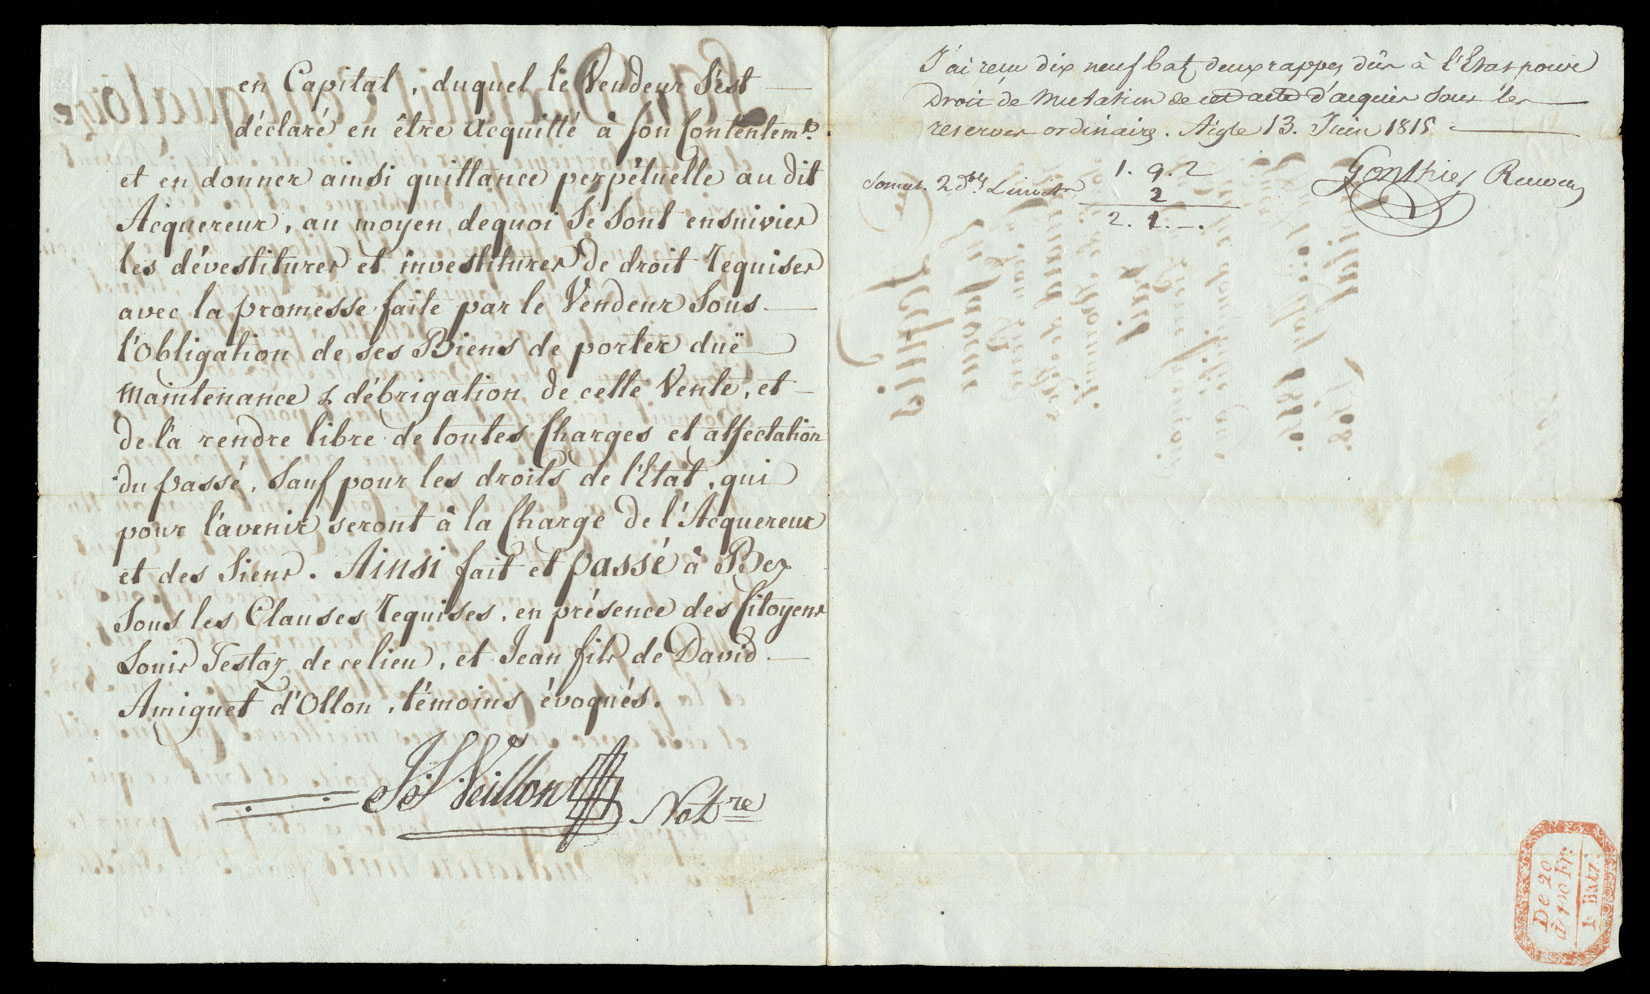 en Capital, duquel le Vendeur S'est
déclaré en être Acquitté à son Contentemt.
et en donner ainsi quittance perpétuelle au dit
Acquereur, au moyen dequoi Se Sont ensuivies
les dévestitures et investitures de droit requises
avec la promesse faite par le Vendeur Sous
l'Obligation de ses Biens de porter duë
Maintenance & débrigation de cette Vente, et
de la rendre libre de toutes Charges et affectation
du passé, Sauf pour les droits de l'Etat, qui
pour l'avenir seront à la Charge de l'Acquereur
et des Siens. Ainsi fait et passé à Bex
Sous les Clauses requises, en présence des Citoyens
Louis Testaz de ce lieu, et Jean fils de David
Amiguet d'Ollon, témoins évoqués.
J. S. Veillon Notre
J'ai reçu dix neuf batz deux rappes dûs à l'Etat pour
Droit de Mutation de cet acte d'acquis sous les
reserves ordinaires. Aigle 13. Juin 1815
Gonthier Receveur
1. 9. 2
2
2. 1. –.
De 20
à 40 fr:
1 Batz.